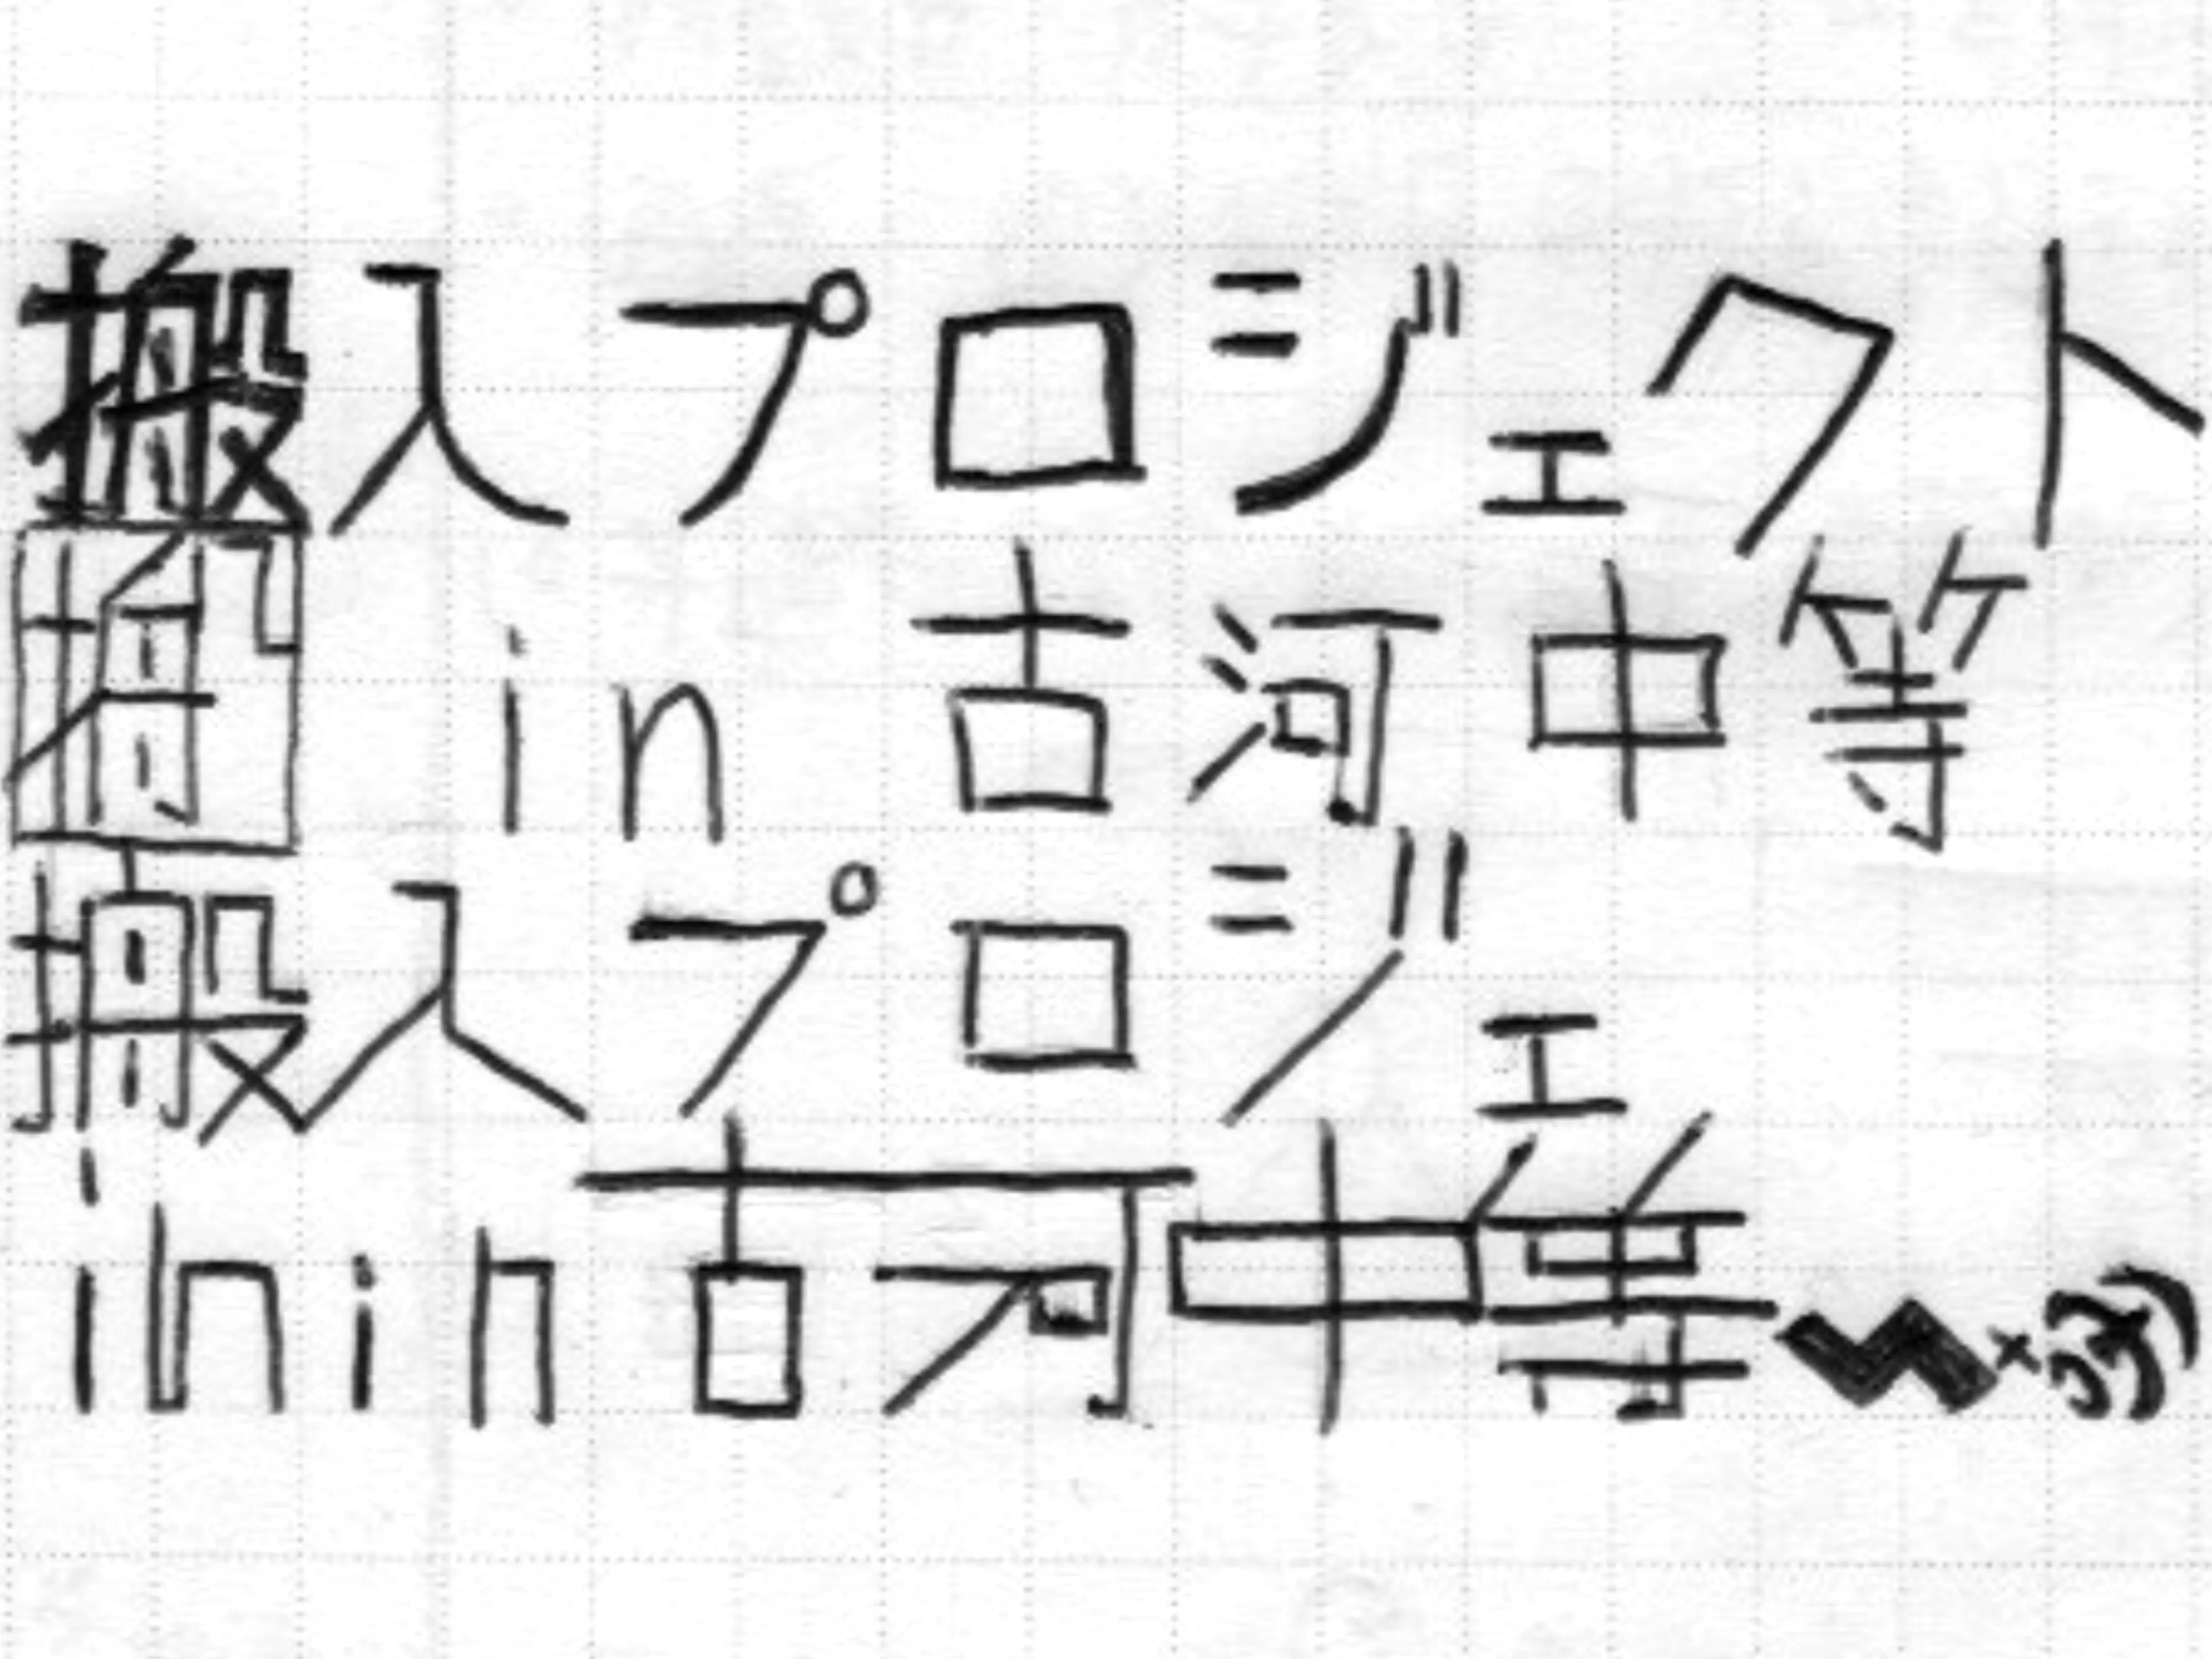 搬入プロジェクト
in 古河中等
搬入プロジェ
inin古河中等